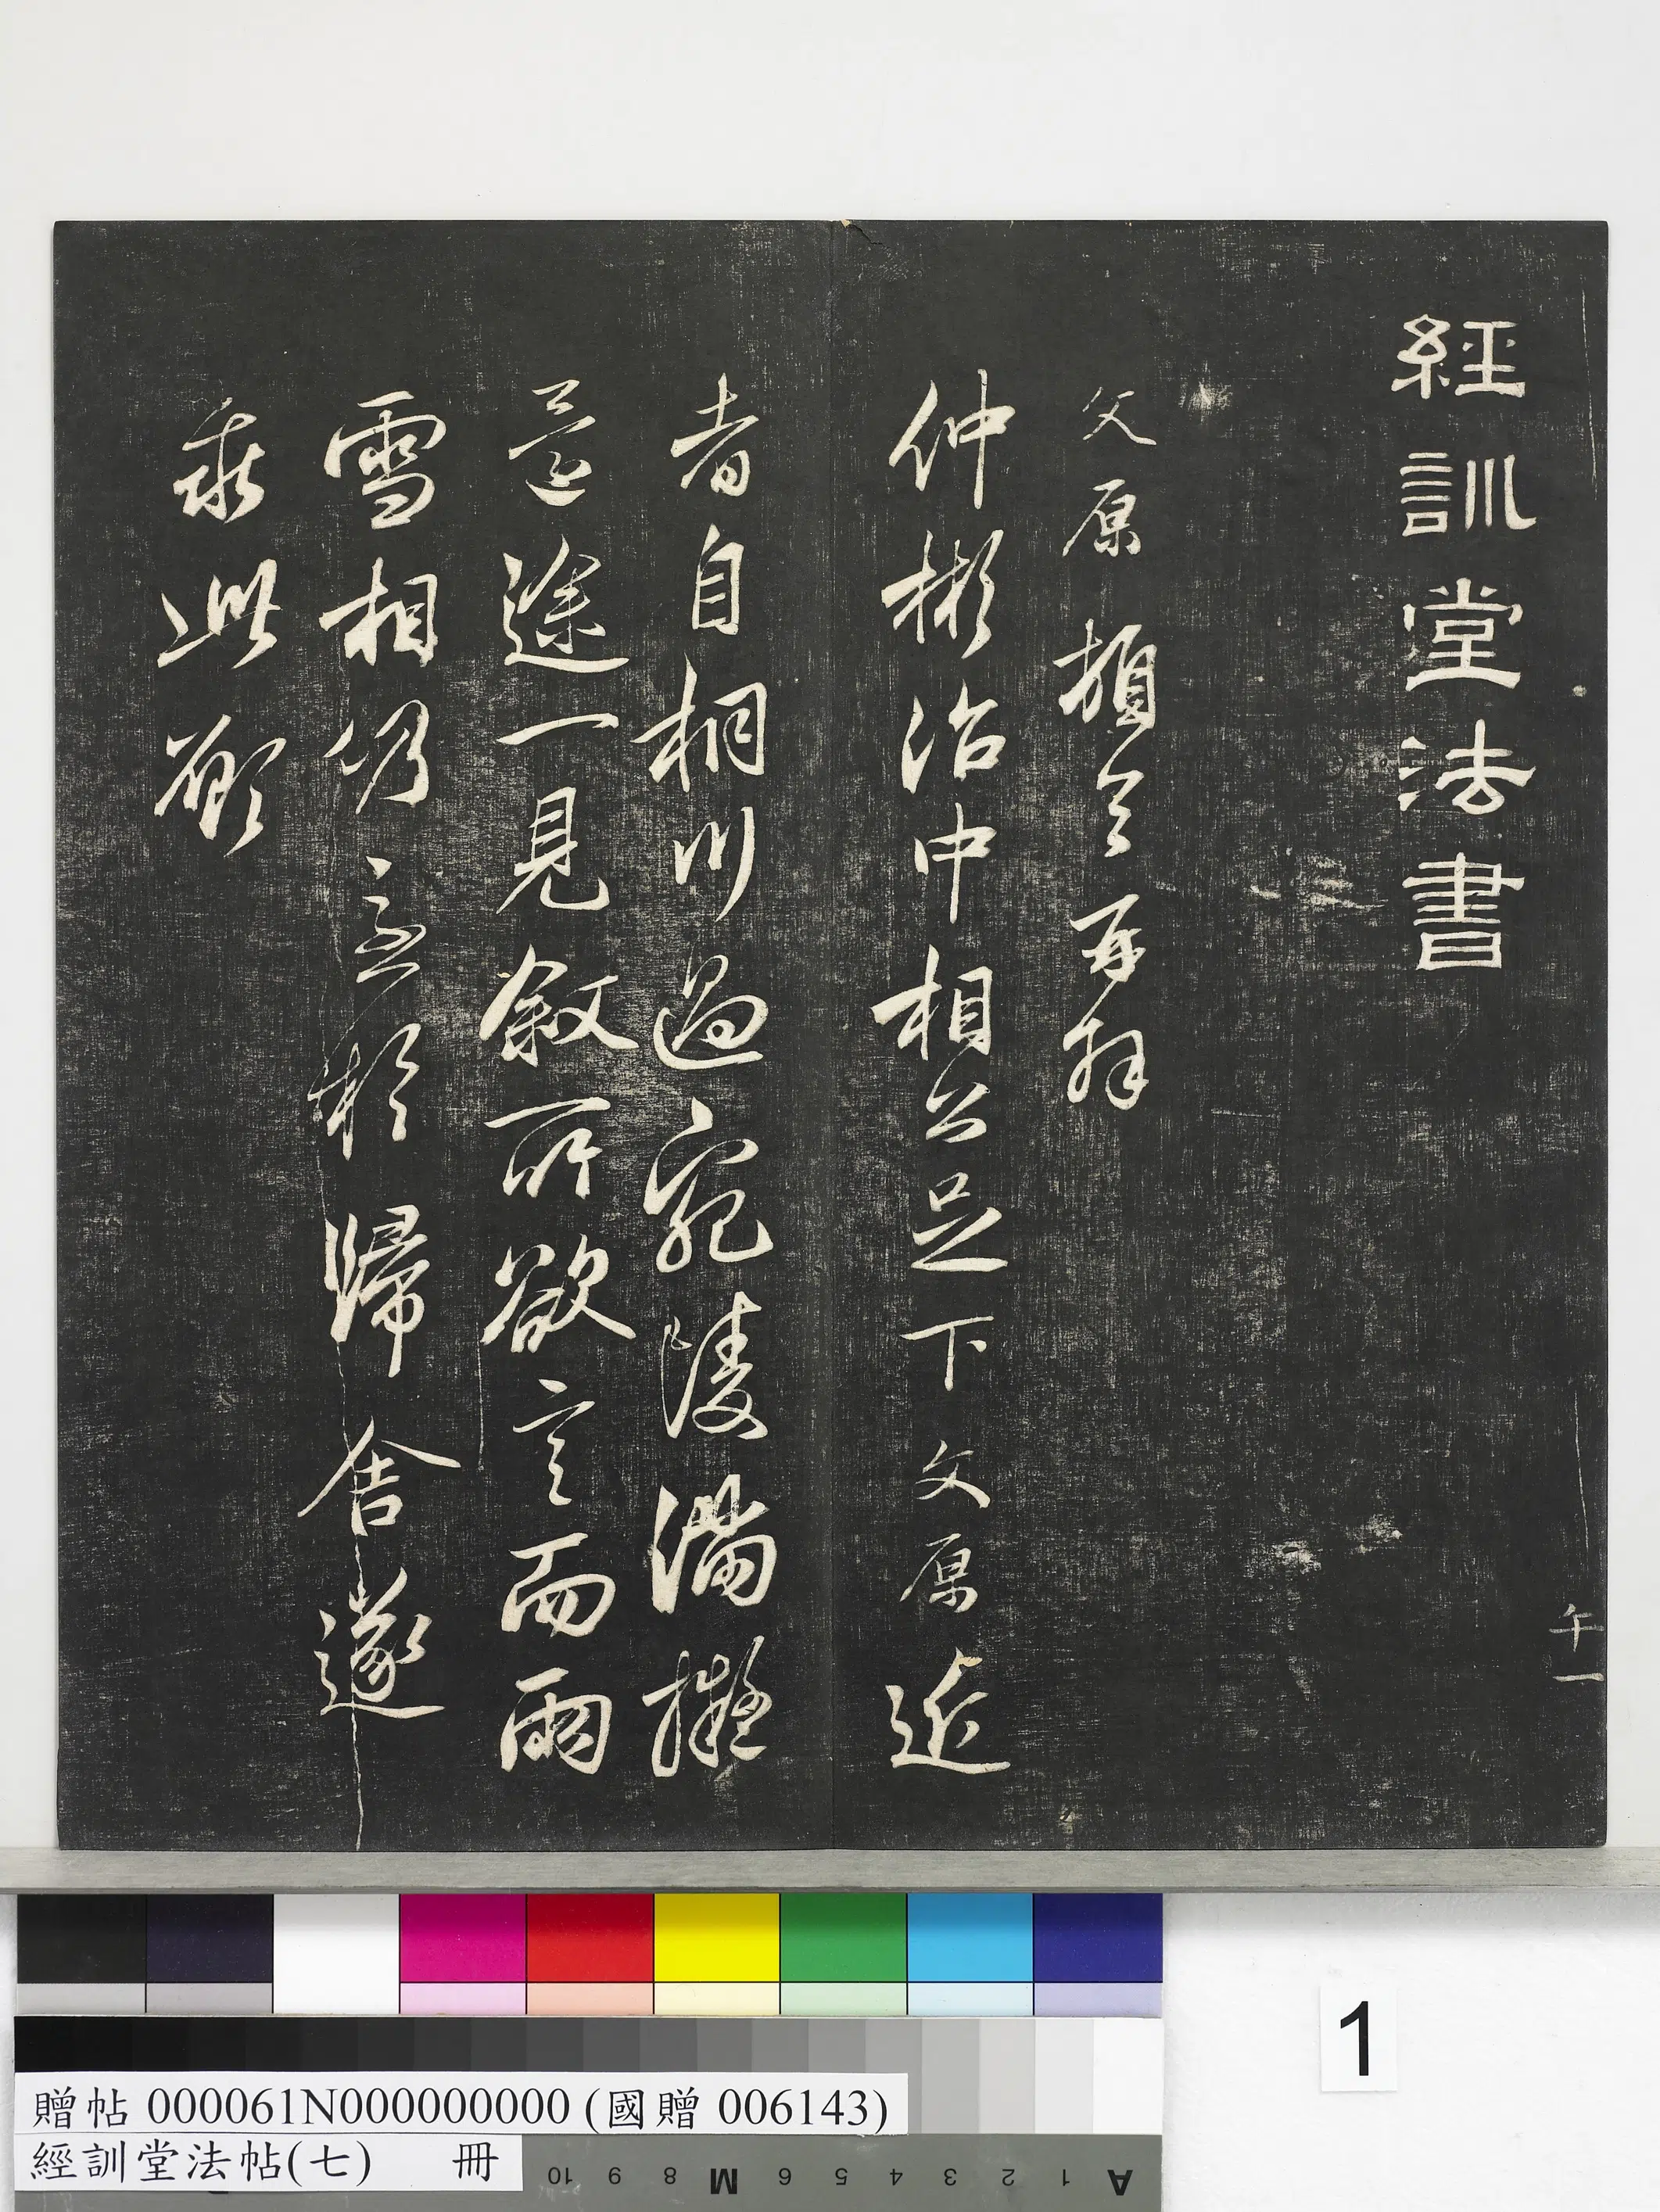 經訓堂法書
午一
文原頓首再拜
仲彬治中相公足下文原近
者自桐川過宛陵滿擬
道途一見敘所欲言而雨
雪相仍急於歸舍遂
乖此願
贈帖 000061N000000000 (國贈 006143)
經訓堂法帖(七) 冊
1
10 9 8 M 6 5 4 3 2 1 A